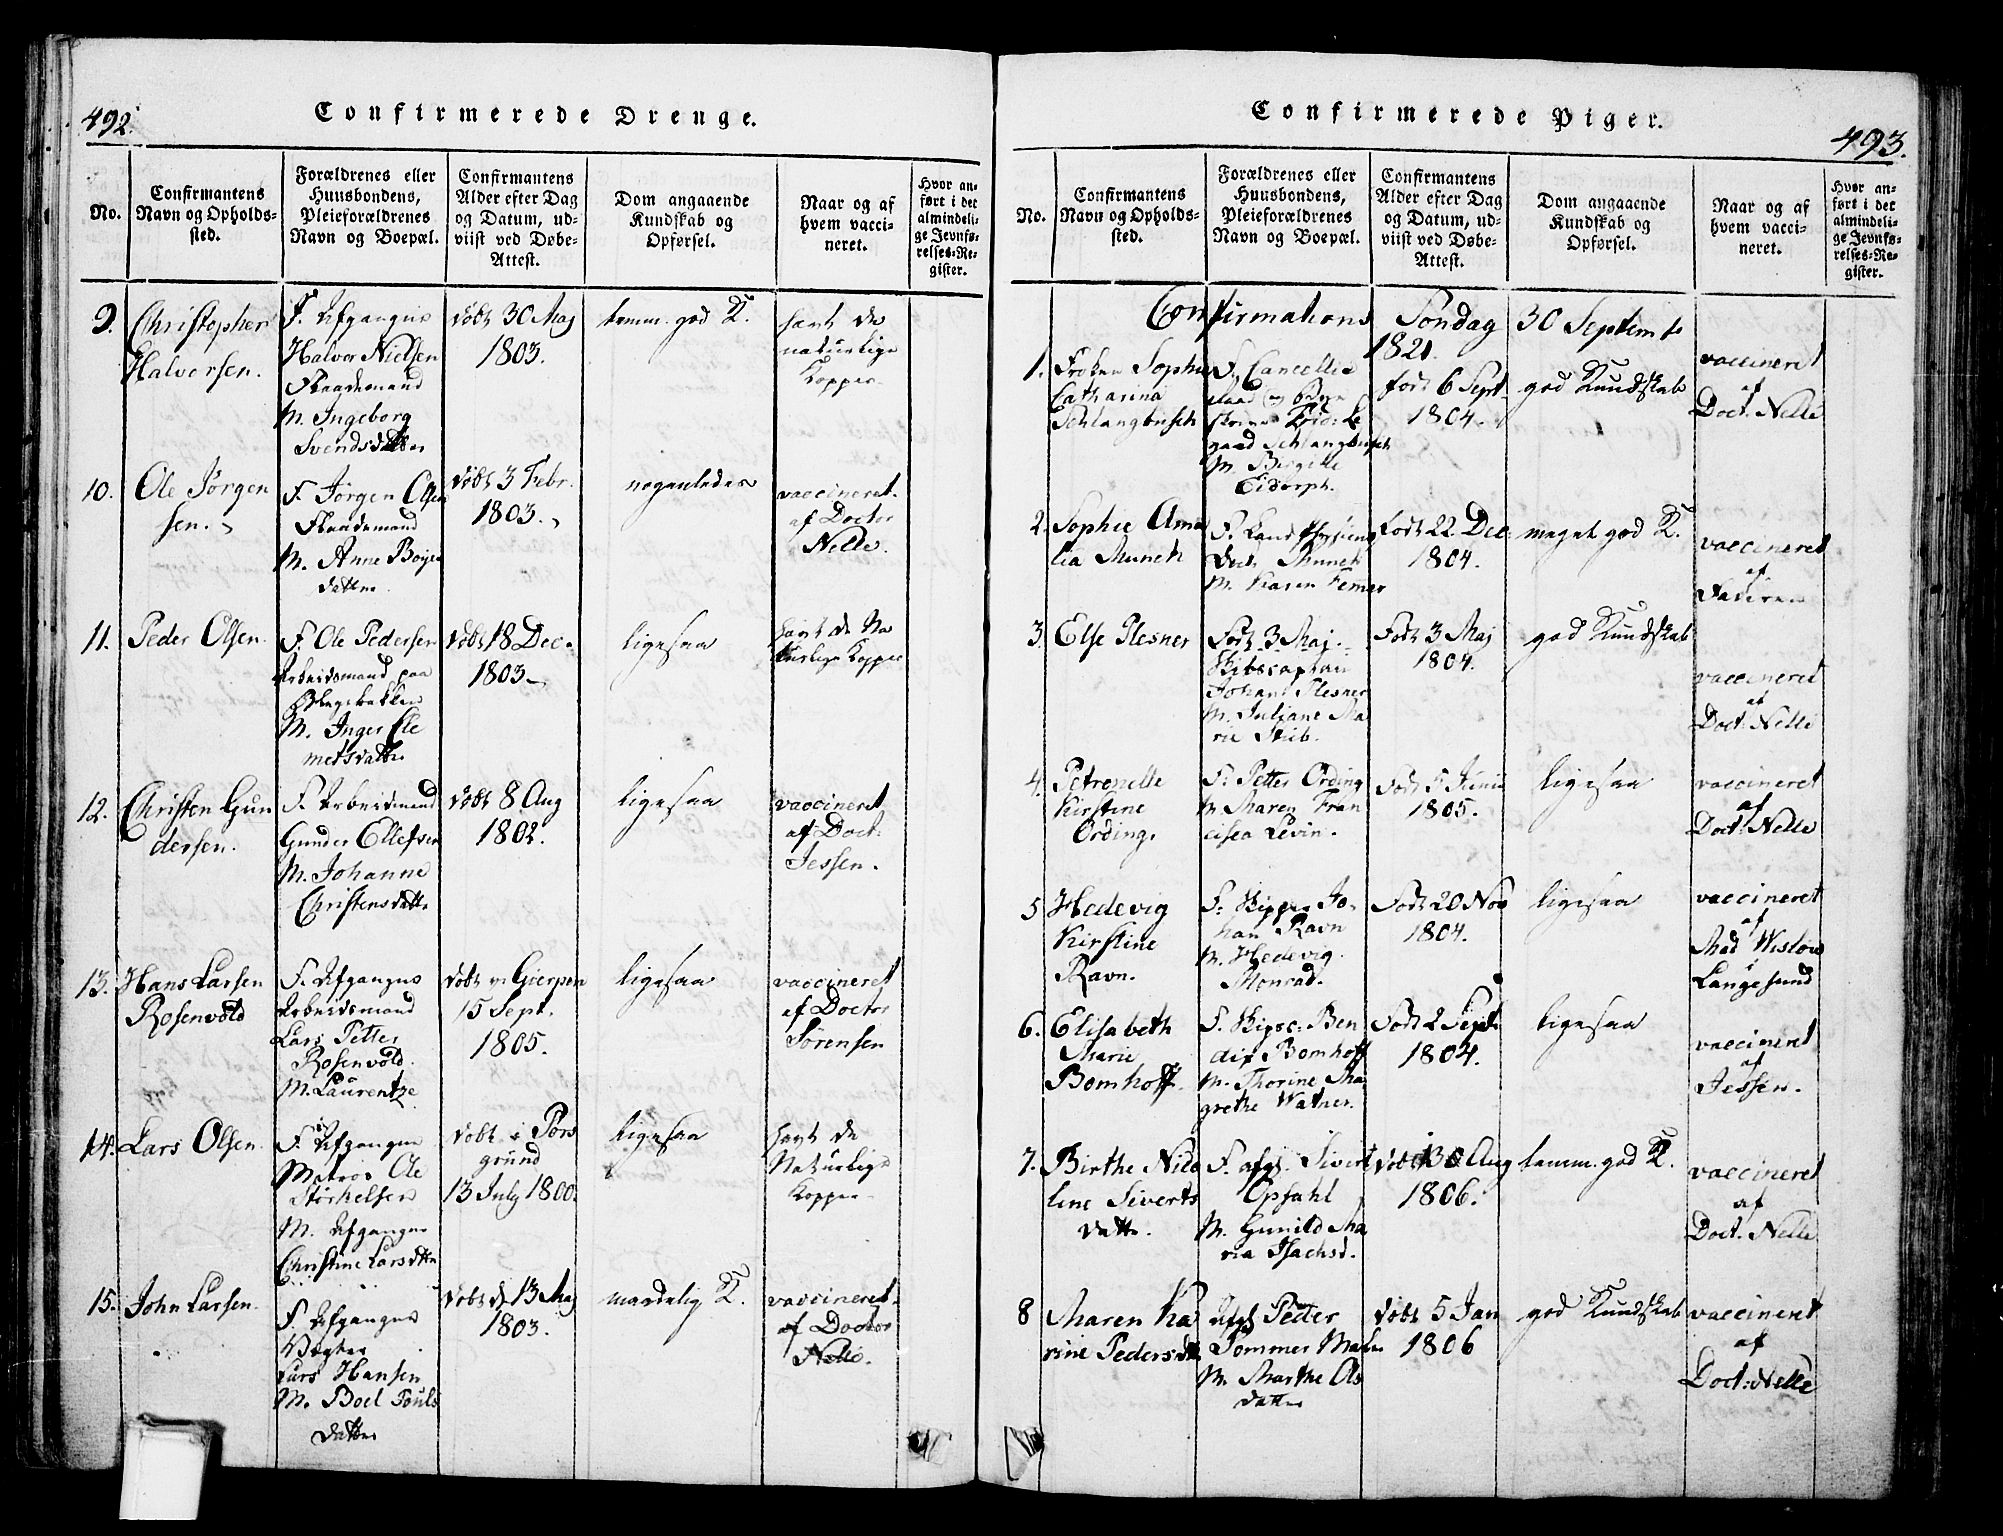 492.
Confirmerede Drenge.
No.
Confirmantens
Navn og Opholds-
sted.
Forældrenes eller
Huusbondens,
Pleieforældrenes
Navn og Boepæl.
Confirmantens
Alder efter Dag
og Datum, ud-
viist ved Døbe-
Attest.
Dom angaaende
Kundskab og
Opførsel.
Naar og af
hvem vacci-
neret.
Hvor an-
ført i det
almindeli-
ge Jevnfø-
relses-Re-
gister.
9.
Christopher
Halvorsen.
F. Afgangne
Halvor Nielsen
Flaademand
M. Ingeborg
Svendsdatter
døbt 30 Maj
1803.
temm. god K.
havt de
naturlige
Kopper
10.
Ole Jørgen
sen.
F. Jørgen Olsen
Flaademand
M. Anne Boije
datter
døbt 3 Febr.
1803.
nogenledes
vaccineret
af Doctor
Nelle.
11.
Peder Olsen
F. Ole Pedersen
Arbeidsmand paa
M. Inger Cle
metsdatter
døbt 18 Dec.
1803
ligesaa
havt de Na
turlige Kopper
12.
Christen Gun
dersen.
F. Arbeidsmand
Gunder Ellefsen
M. Johanne
Christensdatter
døbt 8 Aug
1802.
ligesaa
vaccineret
af Doct:
Jessen.
13.
Hans Larsen
Rosenvold
F. Afgangne
Arbeidsmand
Lars Petter
Rosenvold.
M. Laurentze
døbt i Gierpen
15 Sept.
1805.
ligesaa
vaccineret
af Doctor
Sørensen
14.
Lars Olsen
F. Afgangne
Matros Ole
Størkelsen
M. Afgangne
Christine Larsdtter
døbt i Pors
grund
13 July 1800.
ligesaa
havt de
Naturlige
Kopper
15.
John Larsen
F. Afgangne
Vægter
Lars Hansen
M. Boel Pouls
datter
døbt d. 13 Maj
1803.
maadelig K.
vaccineret
af Doctor
Nelle.
Confirmerede Piger.
493.
No.
Confirmantens
Navn og Opholds-
sted.
Forældrenes eller
Huusbondens,
Pleieforældrenes
Navn og Boepæl.
Confirmantens
Alder efter Dag
og Datum, ud-
viist ved Døbe-
Attest.
Dom angaaende
Kundskab og
Opførsel.
Naar og af
hvem vacci-
neret.
Hvor an-
ført i det
almindeli-
ge Jevnfø-
relses-Re-
gister.
Confirmations Søndag 30 Septemb
1821.
1.
Frøken Sophie
Catharina
Schlangbusch
F. Cancellie
raad og Bye
skriver
gaard Schlangbusch
M. Birgitte
Eidorph.
født 6 Sept
1804.
god Kundskab
vaccineret
af
Doct: Nelle
2.
Sophie Ama
lia Munch
F. Land Physicus
Doct. Munch
M. Karen Femmer
Født 22 Dec
1804.
meget god K.
vaccineret
af
Faderen
3.
Else Plesner
Født 3 Maj.
Skibscaptain
Johan Plesner
M. Juliane Ma
rie Stib.
Født 3 Maj
1804.
god Kundskab
vaccineret
af
Doct. Nelle
4.
Petronelle
Kirstine
Ording.
F. Petter Ording
M. Maren Fran
cisca Levin.
Født 5 Junii
1805.
ligesaa
vaccineret
af
Doct. Nelle
5
Hedevig
Kirstine
Ravn.
F. Skipper Jo
han Ravn
M. Hedevig
Monrad.
Født 20 Nov
1804.
ligesaa
vaccineret
af
Mad Wisløw
i
Langesund
6.
Elisabeth
Marie
Bomhoff.
F. Skipsc: Ben
dix Bomhoff
M. Thorine Ma
grethe Watner.
Født 2 Sept
1804.
ligesaa
vaccineret
af
Jessen.
7.
Birthe Nico
line Siverts
datter.
F. afg. Sivert
Opsahl
M. Gunild Ma
ria Isachsd.
døbt 30 Aug
1806.
temm. god K.
vaccineret
af
Doct. Nelle
8
Maren Ka
rine Pedersdtt
Afg. Peder
Sommer Maler
M. Marthe Ols
datter
døbt 5 Jan
1806
god Kundskab
vaccineret
af
Doct: Nelle